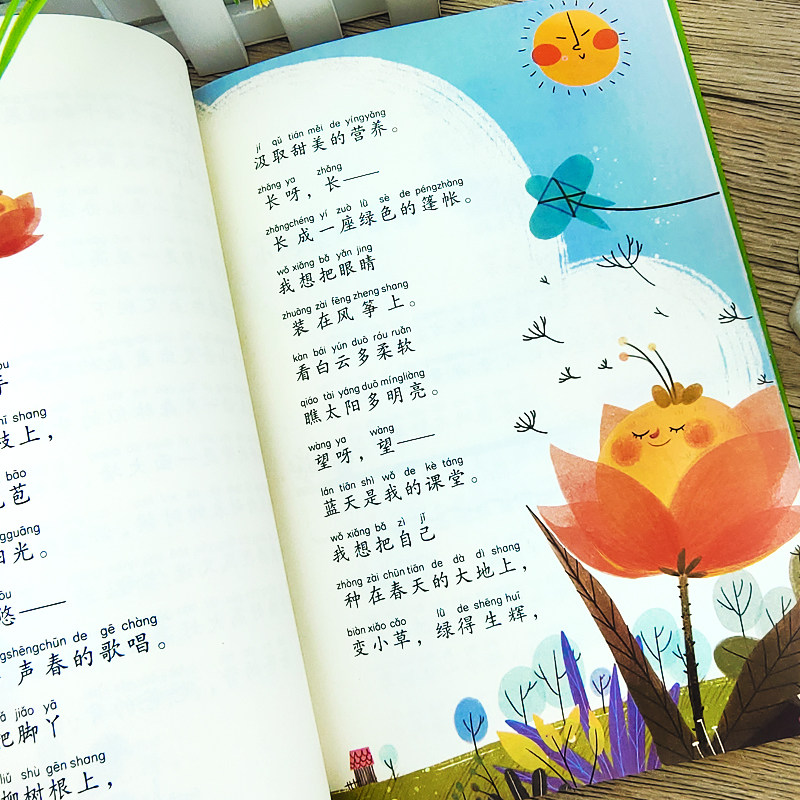 ī shang
枝上，
bāo
苞
guāng
阳光。
悠——
shēngchūn de gē chàng
声春的歌唱。
bǎ jiǎo yā
把脚丫
liǔ shù gēn shang
柳树根上，
jí qǔ tián měi de yíngyǎng
汲取甜美的营养。
zhǎng ya zhǎng
长呀，长——
zhǎngchéng yí zuò lǜ sè de péngzhàng
长成一座绿色的篷帐。
wǒ xiǎng bǎ yǎn jing
我想把眼睛
zhuāng zài fēng zheng shang
装在风筝上。
kàn bái yún duō róu ruǎn
看白云多柔软
qiáo tài yáng duō míngliàng
瞧太阳多明亮。
wàng ya wàng
望呀，望——
lán tiān shì wǒ de kè táng
蓝天是我的课堂。
wǒ xiǎng bǎ zì jǐ
我想把自己
zhòng zài chūn tiān de dà dì shang
种在春天的大地上，
biàn xiǎo cǎo lǜ de shēng huī
变小草，绿得生辉，